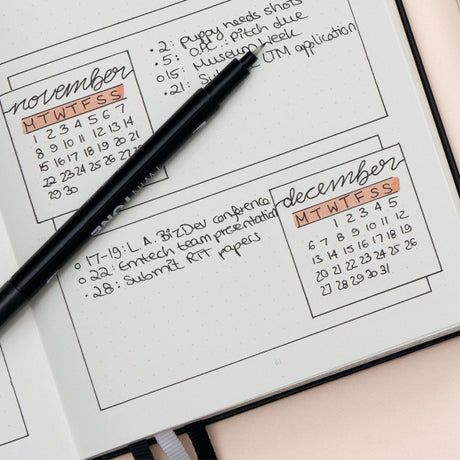 • 2: puppy needs shots
• 5: OPC pitch due
o 15: Museum Week
• 21: UTM application
november
M T W T F S S
1 2 3 4 5 6 7
8 9 10 11 12 13 14
15 16 17 18 19 20 21
22 23 24 25 26 27
29 30
december
M T W T F S S
1 2 3 4 5
6 7 8 9 10 11 12
13 14 15 16 17 18 19
20 21 22 23 24 25 26
27 28 29 30 31
o 17-19: L.A. BizDev conference
o 22: Emtech team presentation
• 28: Submit RTT papers